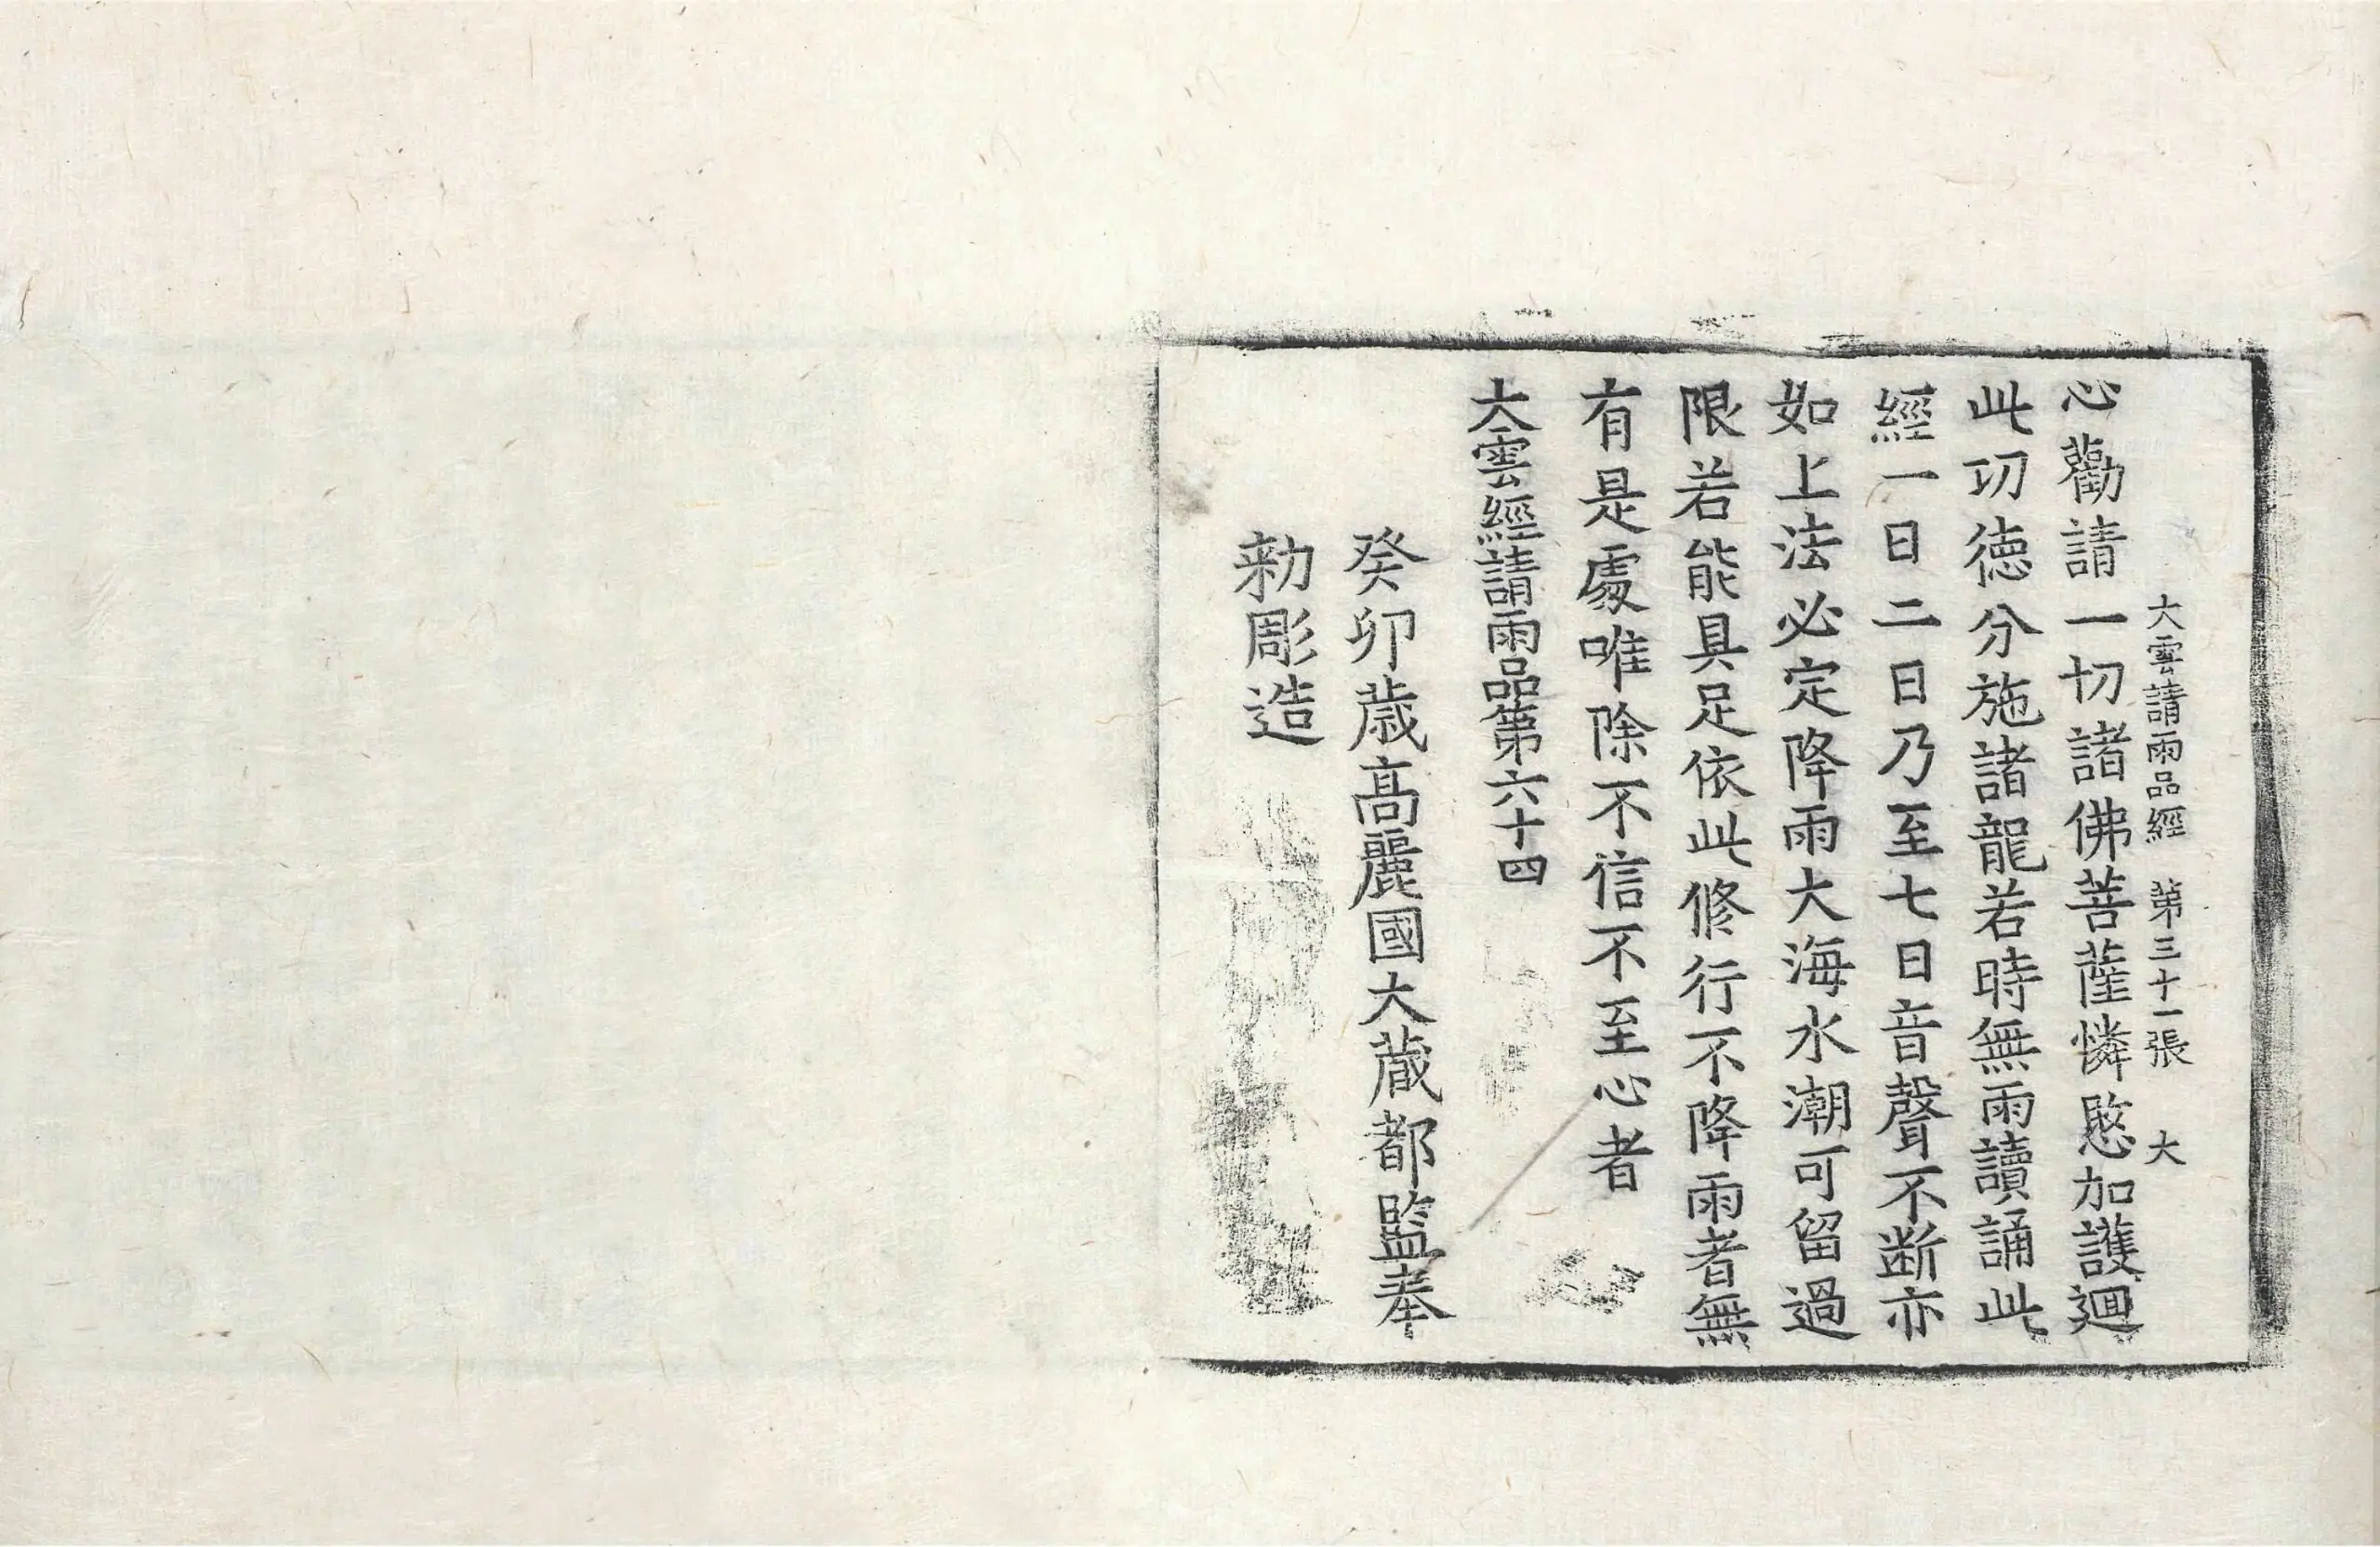 大雲請雨品經 第三十一張 大
心勸請一切諸佛菩薩憐愍加護廻
此切徳分施諸龍若時無雨讀誦此
經一日二日乃至七日音聲不断亦
如上法必定降雨大海水潮可留過
限若能具足依此修行不降雨者無
有是處唯除不信不至心者
大雲經請雨品第六十四
癸卯歳高麗國大蔵都監奉
勑彫造